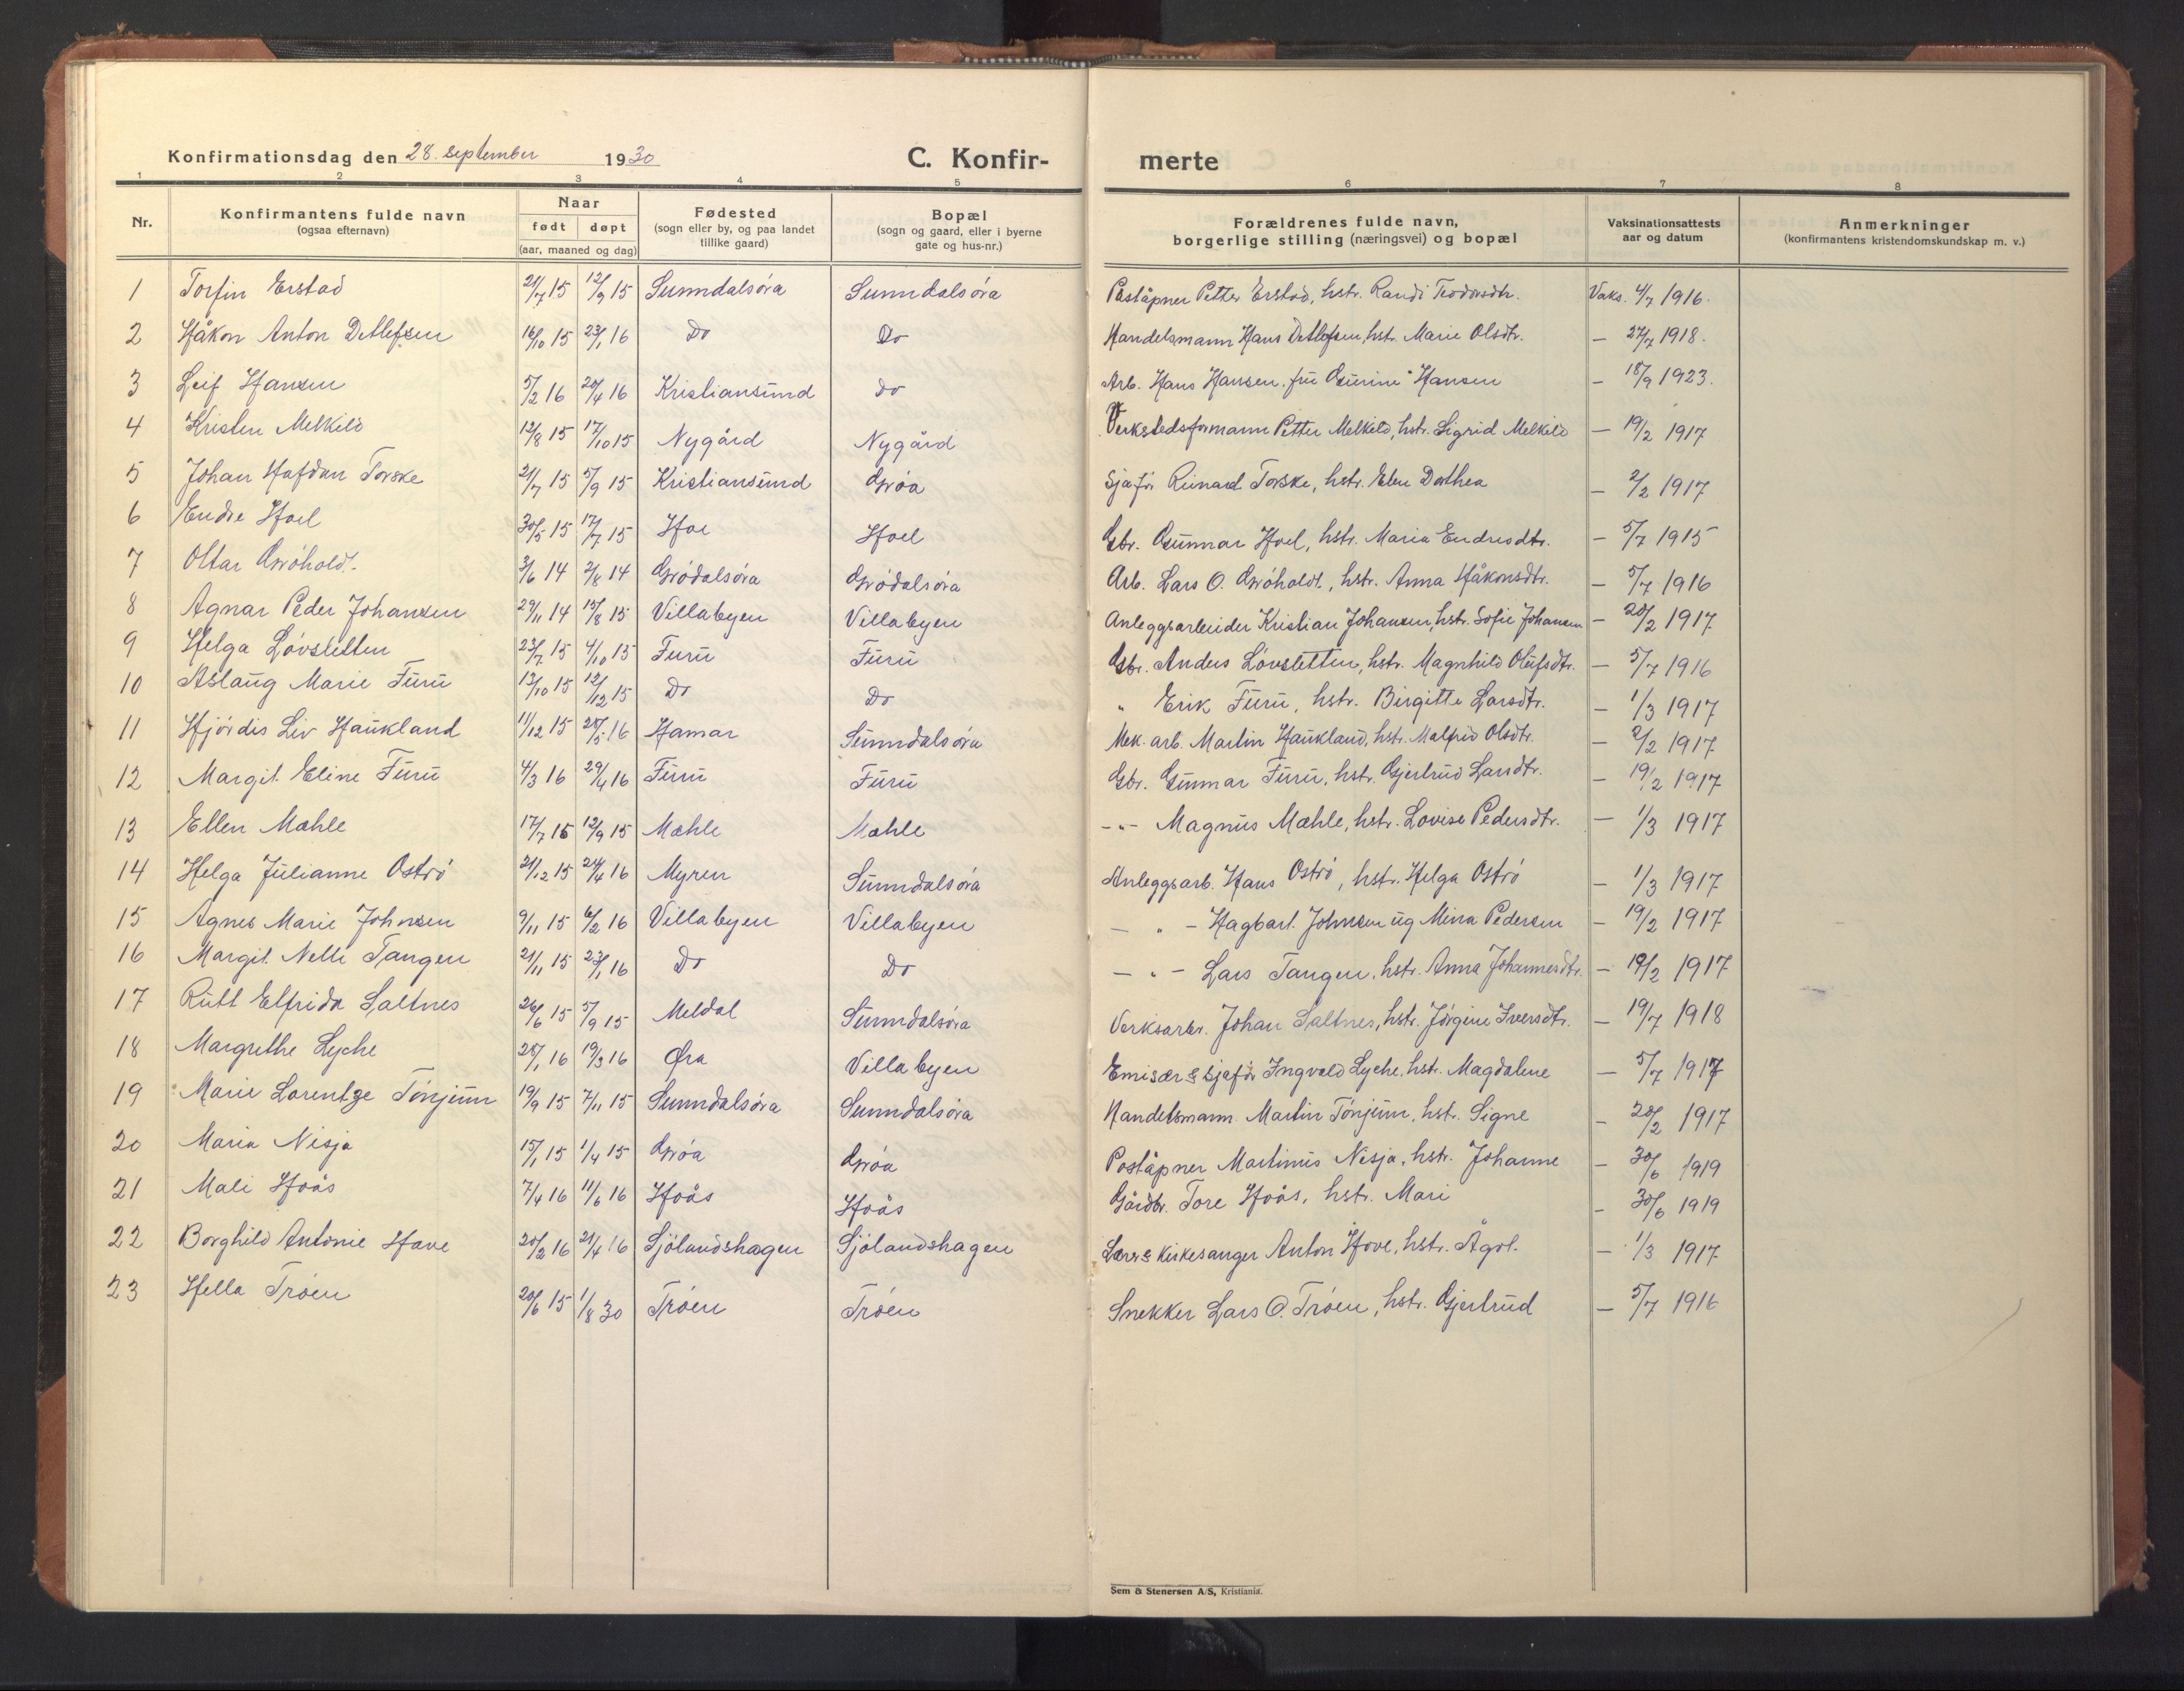 Konfirmationsdag den 28. september 1930
C. Konfir-
merte
1 2 3 4 5 6 7 8
Nr.
Konfirmantens fulde navn
(ogsaa efternavn)
Naar
født døpt
(aar, maaned og dag)
Fødested
(sogn eller by, og paa landet
tillike gaard)
Bopæl
(sogn og gaard, eller i byerne
gate og hus-nr.)
Forældrenes fulde navn,
borgerlige stilling (næringsvei) og bopæl
Vaksinationsattests
aar og datum
Anmerkninger
(konfirmantens kristendomskundskap m. v.)
1 Torfin Erstad 21/7 15 12/9 15 Sunndalsöra Sunndalsöra Poståpner Petter Erstad, hstr. Randi Teodorsdtr. Vaks. 4/7 1916.
2 Håkon Anton Detlefsen 16/10 15 23/1 16 Do Do Handelsmann Hans Detlefsen, hstr. Marie Olsdtr. — 27/7 1918.
3 Leif Hansen 5/2 16 20/4 16 Kristiansund Do Arb. Hans Hansen. fru Gurine Hansen — 18/9 1923.
4 Kristen Melkild 12/8 15 17/10 15 Nygård Nygård Verkstedsformann Petter Melkild, hstr. Sigrid Melkild — 19/2 1917
5 Johan Hafdan Torske 21/7 15 5/9 15 Kristiansund Gröa Sjafför Torske, hstr. Elen Dorthea — 2/2 1917
6 Endre Hoel 30/5 15 17/7 15 Hoe Hoel Gbr. Gunnar Hoel, hstr. Maria Endresdtr. — 5/7 1915
7 Oltar Gröholdt. 3/6 14 2/8 14 Grödalsöra Grödalsöra Arb. Lars O. Gröholdt., hstr. Anna Håkonsdtr. — 5/7 1916
8 Agnar Peder Johansen 29/11 14 15/8 15 Villabyen Villabyen Anleggsarbeider Kristian Johansen, hstr. Sofie Johansen — 20/2 1917
9 Helga Lövsletten 23/7 15 4/10 15 Furu Furu Gbr. Anders Lövsletten, hstr. Magnhild Olufsdtr. — 5/7 1916
10 Aslaug Marie Furu 12/10 15 12/12 15 Do Do " Erik Furu, hstr. Birgitte Larsdtr. — 1/3 1917
11 Hjördis Liv Haukland 11/12 15 28/5 16 Hamar Sunndalsöra Mek. arb. Martin Haukland, hstr. Malfrid Olsdtr. — 2/2 1917
12 Margit Eline Furu 4/3 16 29/4 16 Furu Furu Gbr. Gunnar Furu, hstr. Gjertrud Larsdtr. — 19/2 1917
13 Ellen Mæhle 17/7 15 12/9 15 Mæhle Mæhle -"- Magnus Mæhle, hstr. Lovise Pedersdtr. — 1/3 1917
14 Helga Julianne Oströ 21/12 15 24/4 16 Myren Sunndalsöra Anleggsarb. Hans Oströ, hstr. Helga Oströ — 1/3 1917
15 Agnes Marie Johnsen 9/11 15 6/2 16 Villabyen Villabyen — " — Hagbart Johnsen ug Mina Pedersen — 19/2 1917
16 Margit Nelli Tangen 21/11 15 23/1 16 Do Do — " — Lars Tangen, hstr. Anna Johannesdtr. — 19/2 1917
17 Rutt Elfrida Saltnes 26/6 15 5/9 15 Meldal Sunndalsöra Verksarbr. Johan Saltnes, hstr. Jörgine Iversdtr. — 19/7 1918
18 Margrethe Lyche 16 19/3 16 Öra Villabyen Emisær & sjafför Ingvald Lyche, hstr. Magdalene — 5/7 1917
19 Marie Lorentze Tönjum 19/9 15 7/11 15 Sunndalsöra Sunndalsöra Handelsmann Martin Tönjum, hstr. Signe — 20/2 1917
20 Maria Nisja 15/1 15 1/4 15 Gröa Gröa Poståpner Martinus Nisja, hstr. Johanne — 30/6 1919
21 Mali Hoås 7/4 16 11/6 16 Hoås Hoås Gårdbr. Tore Hoås, hstr. Mari — 30/6 1919
22 Borghild Antonie Hove 20/2 16 21/4 16 Sjölandshagen Sjölandshagen Lærer & Kirkesanger Anton Hove, hstr. Ågot. — 1/3 1917
23 Hella Tröen 20/6 15 1/8 30 Tröen Tröen Snekker Lars O. Tröen, hstr. Gjertrud — 5/7 1916
Sem & Stenersen A/S, Kristiania.